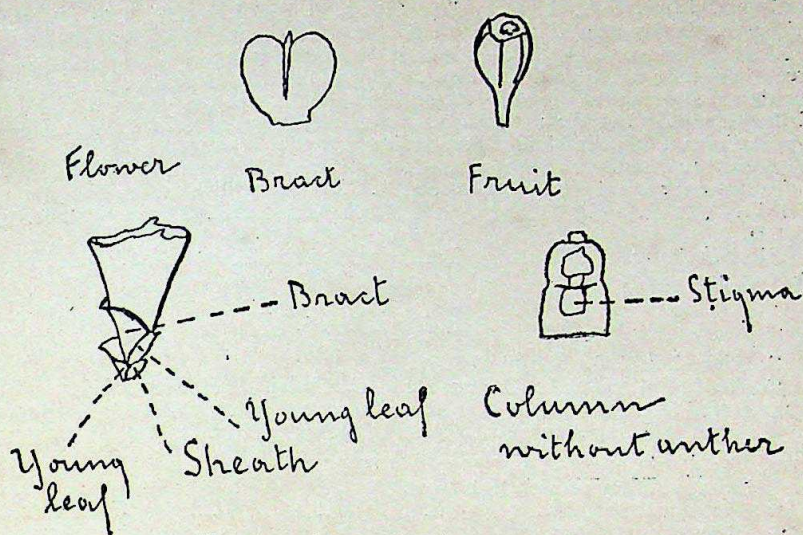 Flower
Bract
Fruit
Bract
Stigma
Young leaf
Sheath
Young
leaf
Column
without anther